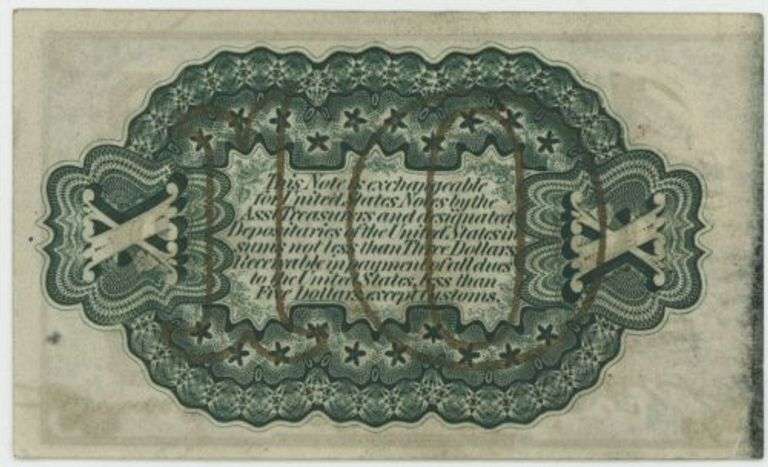 X
This Note is exchangeable
for United States Notes by the
Asst. Treasurers and designated
Depositaries of the United States in
sums not less than Three Dollars
Receivable in payment of all dues
to the United States, less than
Five Dollars, except customs.
X
10